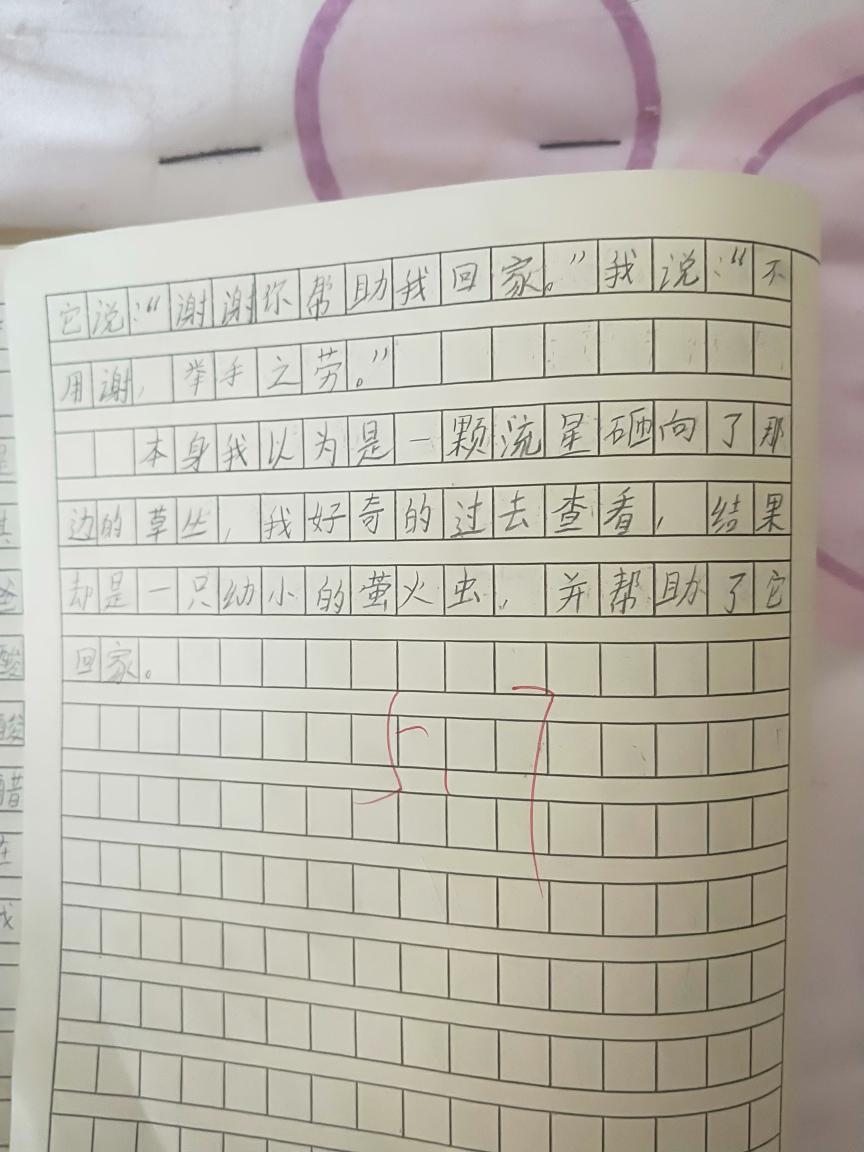 它说:“谢谢你帮助我回家。”我说:“不
用谢,举手之劳。”
本身我以为是一颗流星砸向了那
边的草丛,我好奇的过去查看,结果
却是一只幼小的萤火虫,并帮助了它
回家。
酸
酸
醋
在